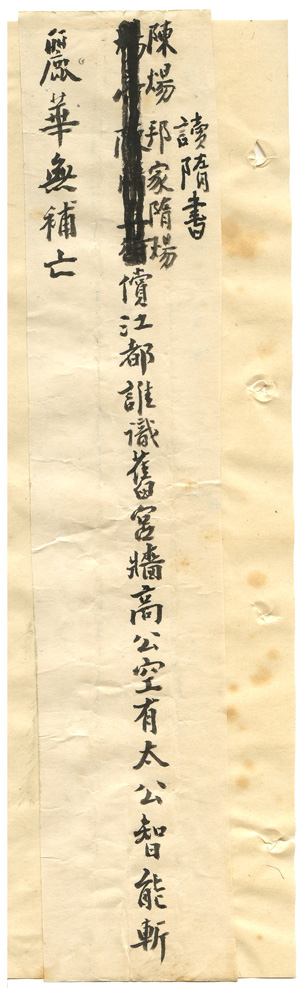 讀隋書
陳煬邦家隋煬
償江都誰識舊宮牆高公空有太公智能斬
麗華無補亡